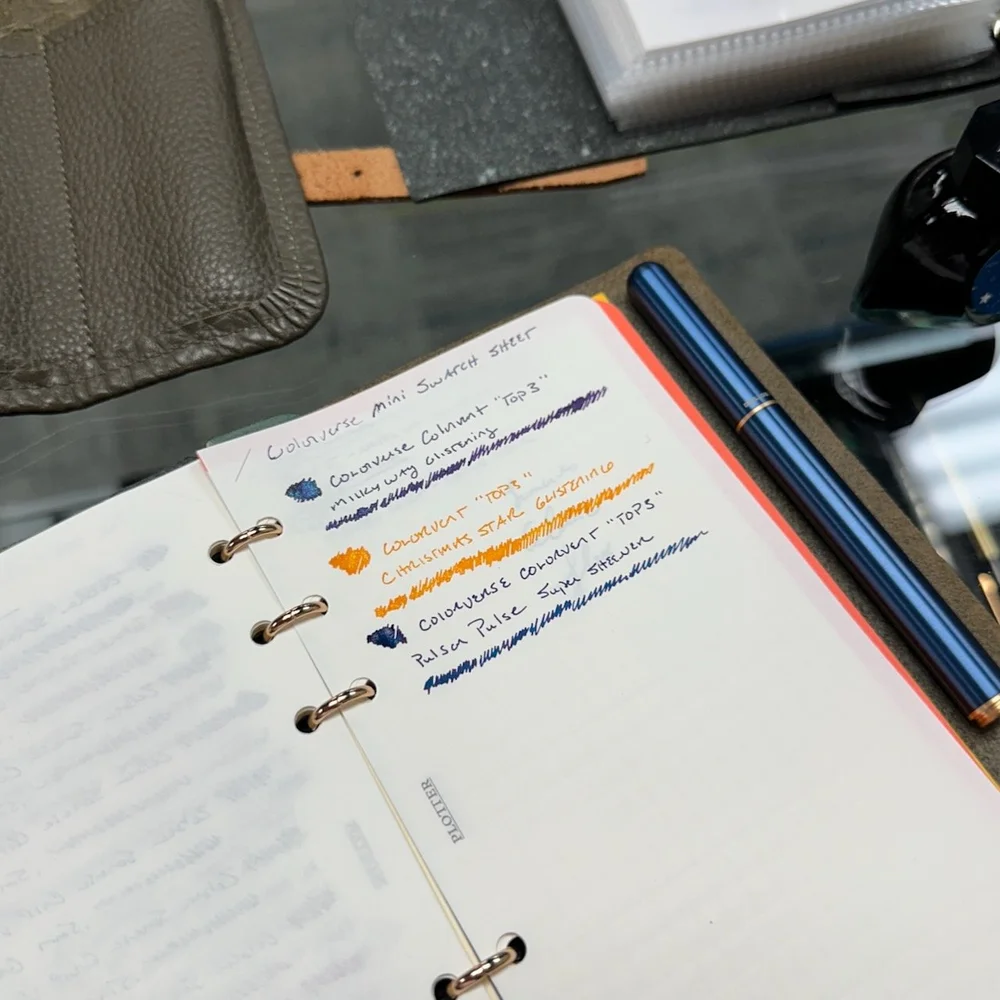 Colorverse Mini Swatch Sheet
Colorverse Colorvent "TOP3"
Milky Way Glistening
Colorvent "TOP3"
Christmas Star Glistening
Colorverse Colorvent "TOP3"
Pulsar Pulse Super Sheener
PLOTTER